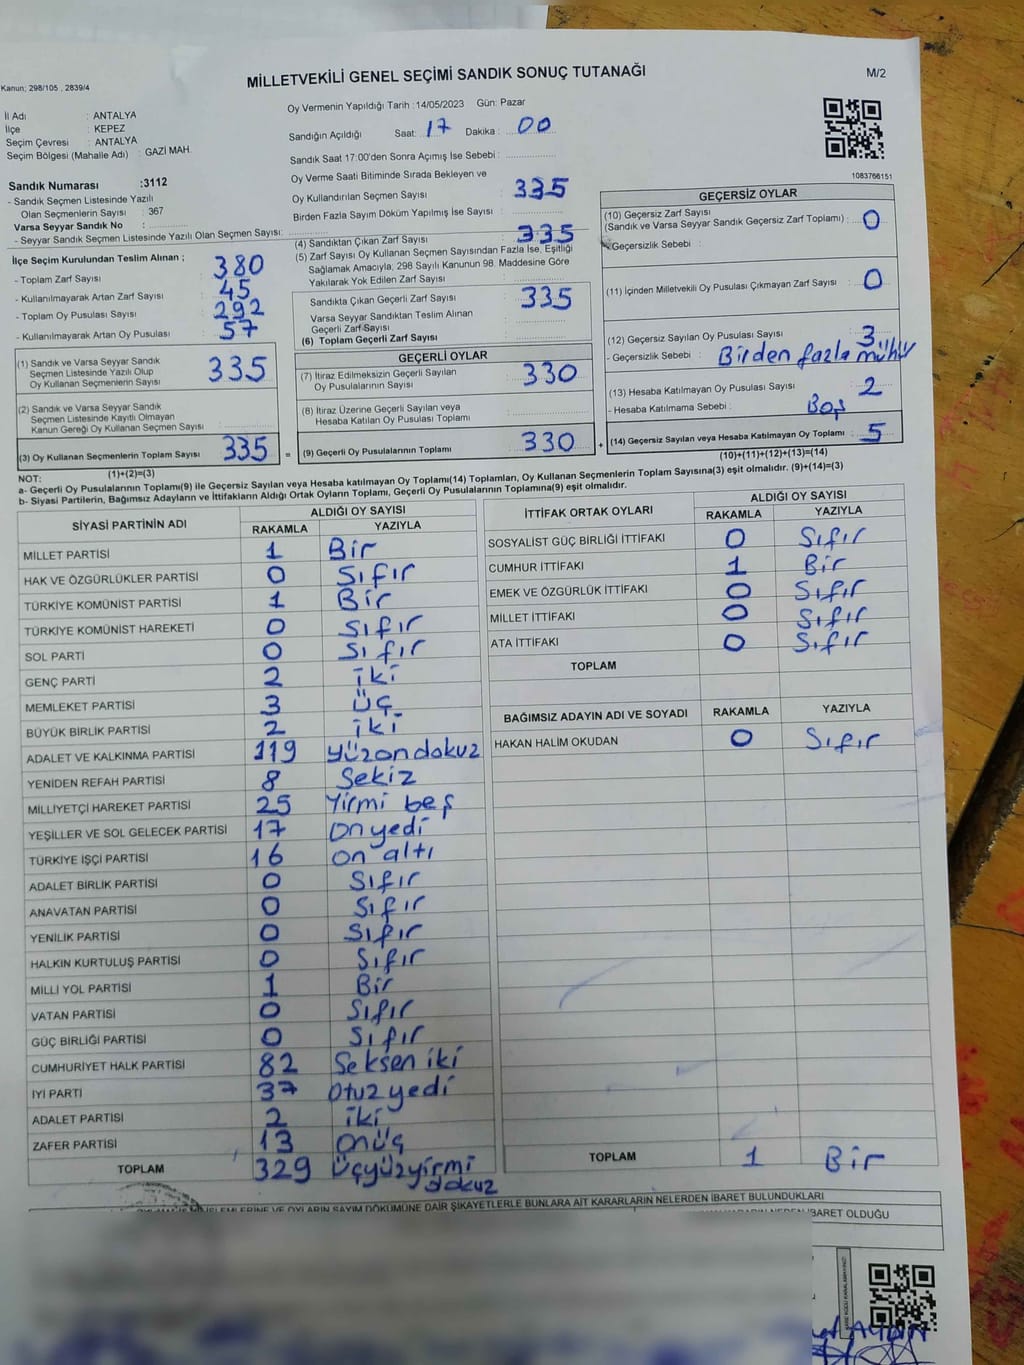 Kanun; 298/105 , 2839/4
MİLLETVEKİLİ GENEL SEÇİMİ SANDIK SONUÇ TUTANAĞI
M/2
İl Adı : ANTALYA
İlçe : KEPEZ
Seçim Çevresi : ANTALYA
Seçim Bölgesi (Mahalle Adı) : GAZİ MAH.
Sandık Numarası :3112
- Sandık Seçmen Listesinde Yazılı
Olan Seçmenlerin Sayısı : 367
Varsa Seyyar Sandık No :
- Seyyar Sandık Seçmen Listesinde Yazılı Olan Seçmen Sayısı:
Oy Vermenin Yapıldığı Tarih :14/05/2023 Gün: Pazar
Sandığın Açıldığı Saat: 17 Dakika : 00
Sandık Saat 17:00'den Sonra Açımış İse Sebebi :
Oy Verme Saati Bitiminde Sırada Bekleyen ve
Oy Kullandırılan Seçmen Sayısı 335
Birden Fazla Sayım Döküm Yapılmış İse Sayısı :
1083766151
İlçe Seçim Kurulundan Teslim Alınan ;
- Toplam Zarf Sayısı : 380
- Kullanılmayarak Artan Zarf Sayısı : 45
- Toplam Oy Pusulası Sayısı : 292
- Kullanılmayarak Artan Oy Pusulası : 57
(1) Sandık ve Varsa Seyyar Sandık
Seçmen Listesinde Yazılı Olup
Oy Kullanan Seçmenlerin Sayısı : 335
(2) Sandık ve Varsa Seyyar Sandık
Seçmen Listesinde Kayıtlı Olmayan
Kanun Gereği Oy Kullanan Seçmen Sayısı :
(3) Oy Kullanan Seçmenlerin Toplam Sayısı : 335
(1)+(2)=(3)
(4) Sandıktan Çıkan Zarf Sayısı : 335
(5) Zarf Sayısı Oy Kullanan Seçmen Sayısından Fazla İse, Eşitliği
Sağlamak Amacıyla; 298 Sayılı Kanunun 98. Maddesine Göre
Yakılarak Yok Edilen Zarf Sayısı :
Sandıkta Çıkan Geçerli Zarf Sayısı : 335
Varsa Seyyar Sandıktan Teslim Alınan
Geçerli Zarf Sayısı :
(6) Toplam Geçerli Zarf Sayısı :
GEÇERLİ OYLAR
(7) İtiraz Edilmeksizin Geçerli Sayılan
Oy Pusulalarının Sayısı : 330
(8) İtiraz Üzerine Geçerli Sayılan veya
Hesaba Katılan Oy Pusulası Toplamı :
= (9) Geçerli Oy Pusulalarının Toplamı : 330 +
GEÇERSİZ OYLAR
(10) Geçersiz Zarf Sayısı
(Sandık ve Varsa Seyyar Sandık Geçersiz Zarf Toplamı) : 0
- Geçersizlik Sebebi :
(11) İçinden Milletvekili Oy Pusulası Çıkmayan Zarf Sayısı : 0
(12) Geçersiz Sayılan Oy Pusulası Sayısı : 3
- Geçersizlik Sebebi : Birden fazla mühür
(13) Hesaba Katılmayan Oy Pusulası Sayısı : 2
- Hesaba Katılmama Sebebi : Boş
(14) Geçersiz Sayılan veya Hesaba Katılmayan Oy Toplamı : 5
(10)+(11)+(12)+(13)=(14)
NOT:
a- Geçerli Oy Pusulalarının Toplamı(9) ile Geçersiz Sayılan veya Hesaba katılmayan Oy Toplamı(14) Toplamları, Oy Kullanan Seçmenlerin Toplam Sayısına(3) eşit olmalıdır. (9)+(14)=(3)
b- Siyasi Partilerin, Bağımsız Adayların ve İttifakların Aldığı Ortak Oyların Toplamı, Geçerli Oy Pusulalarının Toplamına(9) eşit olmalıdır.
SİYASİ PARTİNİN ADI ALDIĞI OY SAYISI
RAKAMLA YAZIYLA
MİLLET PARTİSİ 1 Bir
HAK VE ÖZGÜRLÜKLER PARTİSİ 0 Sıfır
TÜRKİYE KOMÜNİST PARTİSİ 1 Bir
TÜRKİYE KOMÜNİST HAREKETİ 0 Sıfır
SOL PARTİ 0 Sıfır
GENÇ PARTİ 2 iki
MEMLEKET PARTİSİ 3 üç
BÜYÜK BİRLİK PARTİSİ 2 iki
ADALET VE KALKINMA PARTİSİ 119 yüzondokuz
YENİDEN REFAH PARTİSİ 8 Sekiz
MİLLİYETÇİ HAREKET PARTİSİ 25 Yirmi beş
YEŞİLLER VE SOL GELECEK PARTİSİ 17 On yedi
TÜRKİYE İŞÇİ PARTİSİ 16 on altı
ADALET BİRLİK PARTİSİ 0 Sıfır
ANAVATAN PARTİSİ 0 Sıfır
YENİLİK PARTİSİ 0 Sıfır
HALKIN KURTULUŞ PARTİSİ 0 Sıfır
MİLLİ YOL PARTİSİ 1 Bir
VATAN PARTİSİ 0 Sıfır
GÜÇ BİRLİĞİ PARTİSİ 0 Sıfır
CUMHURİYET HALK PARTİSİ 82 Seksen iki
İYİ PARTİ 37 Otuz yedi
ADALET PARTİSİ 2 iki
ZAFER PARTİSİ 13 Onüç
TOPLAM 329 üçyüzyirmi
dokuz
İTTİFAK ORTAK OYLARI ALDIĞI OY SAYISI
RAKAMLA YAZIYLA
SOSYALİST GÜÇ BİRLİĞİ İTTİFAKI 0 Sıfır
CUMHUR İTTİFAKI 1 Bir
EMEK VE ÖZGÜRLÜK İTTİFAKI 0 Sıfır
MİLLET İTTİFAKI 0 Sıfır
ATA İTTİFAKI 0 Sıfır
TOPLAM
BAĞIMSIZ ADAYIN ADI VE SOYADI RAKAMLA YAZIYLA
HAKAN HALİM OKUDAN 0 Sıfır
TOPLAM 1 Bir
İŞLEMLERİNE VE OYLARIN SAYIM DÖKÜMÜNE DAİR ŞİKAYETLERLE BUNLARA AİT KARARLARIN NELERDEN İBARET BULUNDUKLARI
İBARET OLDUĞU
AYDIN